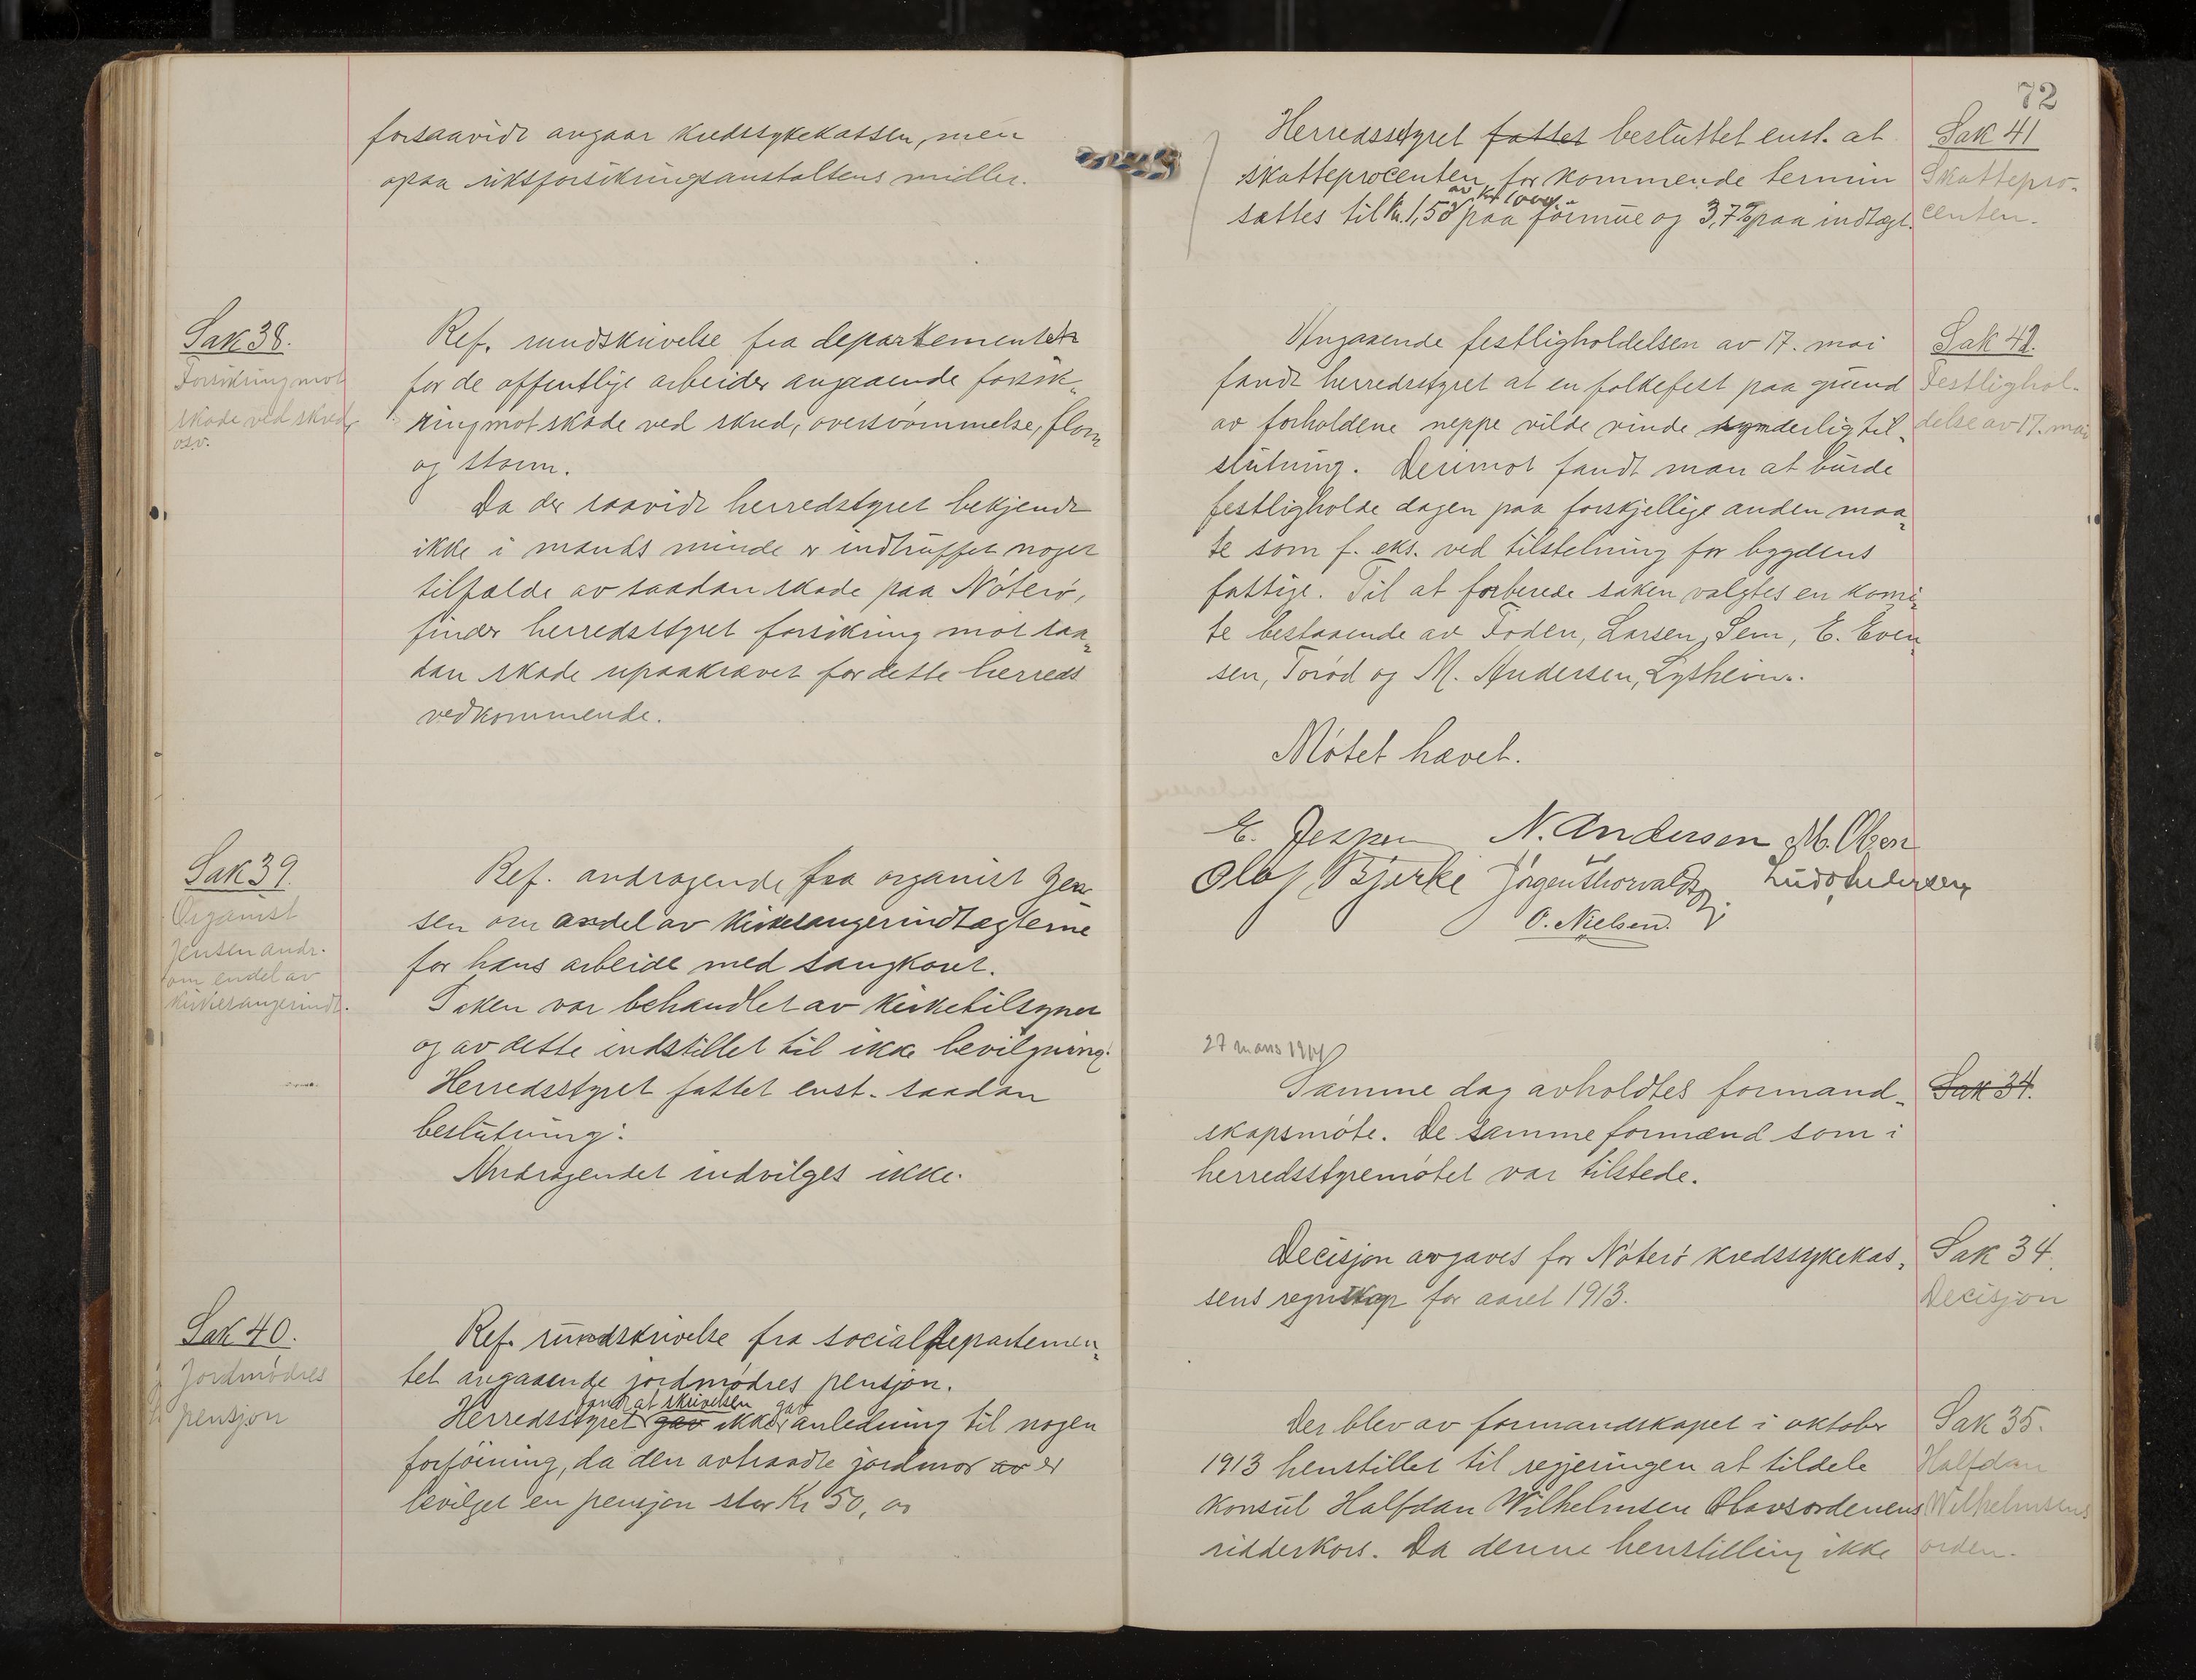 forsaavidt angaar kredssykekassen, men
ogsaa riksforsikringsanstaltens midler.
Sak 38.
Forsikring mot
skade ved skred,
osv.
Ref. rundskrivelse fra departementet
for de offentlige arbeider angaaende forsik-
ring mot skade ved skred, oversvömmelse, flom
og storm.
Da der saavidt herredstyret bekjendt
ikke i mands minde er indtruffet noget
tilfælde av saadan skade paa Nöterö,
finder herredsstyret forsikring mot saa-
dan skade upaakrævet for dette herreds
vedkommende.
Sak 39.
Organist
Jensen andr.
om endel av
kirkesangerindt.
Ref. andragende fra organist Jen-
sen om andel av kirkesangerindtægterne
for hans arbeide med sangkoret.
Saken var behandlet av kirketilsynet
og av dette indstillet til ikke bevilgning.
Herredsstyret fattet enst. saadan
beslutning:
Andragendet indvilges ikke.
Sak 40.
Jordmödres
pensjon
Ref. rundskrivelse fra socialdepartemen-
tet angaaende jordmødres pensjon.
fandt at skrivelsen gav
Herredsstyret gav ikke anledning til nogen
forföining, da den avtraadte jordmor av er
bevilget en pensjon stor Kr 50,00
72
Herredsstyret fattet besluttet enst. at
skatteprocenten for kommende termin
av kr 1000
sættes til kr. 1,50 paa formue og 3,7% paa indtægt.
Sak 41
Skattepro-
centen.
Angaaende festligholdelsen av 17. mai
fandt herredsstyret at en folkefest paa grund
av forholdene neppe vilde vinde synderlig til-
slutning. Derimot fandt man at burde
festligholde dagen paa forskjellige anden maa-
te som f. eks. ved tilstelning for bygdens
fattige. Til at forberede saken valgtes en komi-
te bestaaende av Foden, Larsen, Sem, E. Even-
sen, Toröd og M. Andersen, Lysheim.
Sak 42.
Festlighol-
delse av 17. mai
Mötet hævet.
E. Jespersen N. Andersen M. Olsen
Olaf Bjerke Jörgen Thorvaldsen Ludv Andersen
O. Nielsen.
27 mars 1914
Samme dag avholdtes formand-
skapsmöte. De samme formænd som i
herredsstyremötet var tilstede.
Sak 34.
Decisjon avgaves for Nöterö kredssykekas-
sens regnskap for aaret 1913.
Sak 34.
Decisjon
Der blev av formandskapet i oktober
1913 henstillet til regjeringen at tildele
konsul Halfdan Wilhelmsen Olavsordenens
ridderkors. Da denne henstilling ikke
Sak 35.
Halfdan
Wilhelmsens
orden.